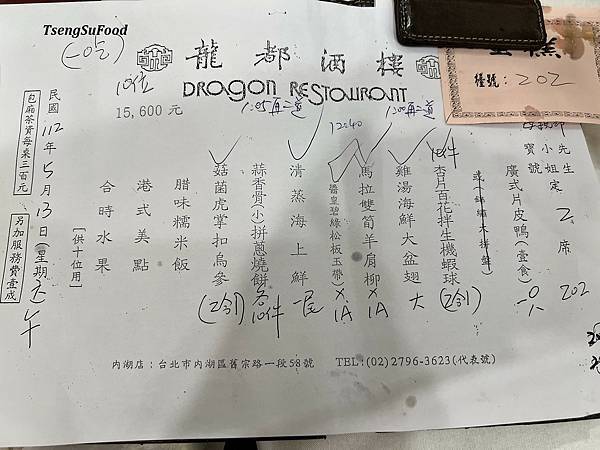 TsengSuFood
龍都酒樓
DRAGON RESTAURANT
10位
15,600 元
1:05再二道
12:40
1:00再一道
檯號：202
先生
小姐定 2 席 202
寶號
廣式片皮鴨(壹食)
或(錦繡大拼盤)
10件
杏片百花拌生機蝦球 (2例)
雞湯海鮮大盆翅 大
馬拉雙筍羊肩柳 X 1A
醬皇碧綠松板玉帶) X 1A
清蒸海上鮮 一尾
蒜香骨(小)拼蔥燒餅 各10件
菇菌虎掌扣烏參 (2例)
腊味糯米飯
港式美點
合時水果
[供十位用]
民國112年5月13日(星期六)午
包廂茶資每桌三百元
另加服務費壹成
內湖店：台北市內湖區舊宗路一段58號 TEL:(02)2796-3623(代表號)